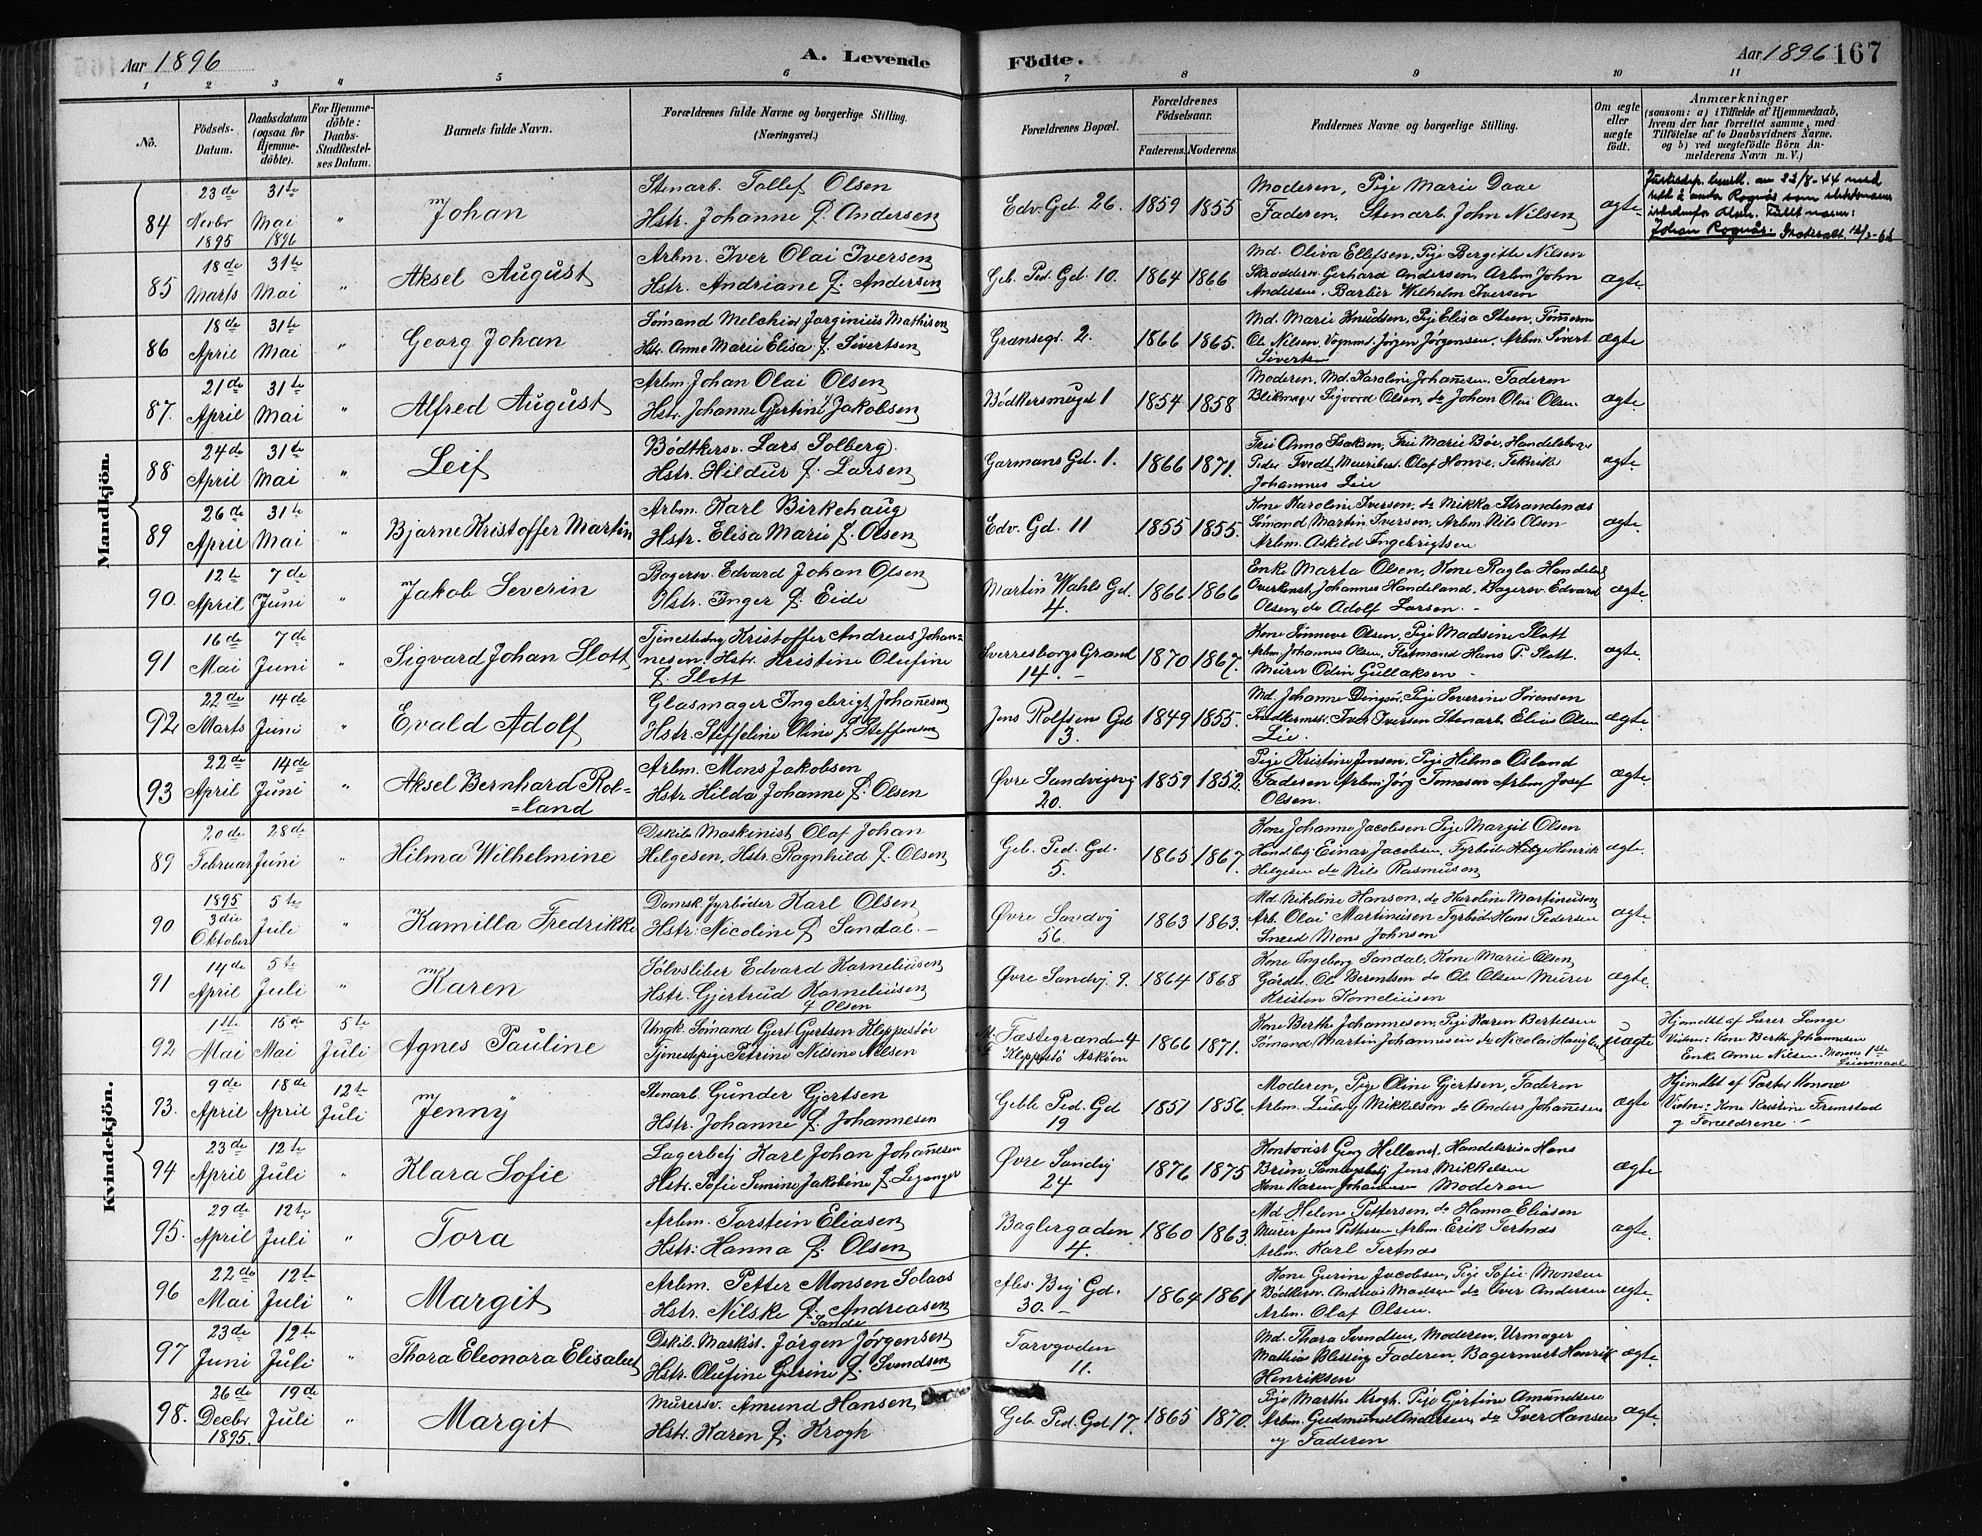 Aar 1896
A. Levende
Födte.
Aar 1896
167
1 2 3 4 5 6 7 8 9 10 11
No.
Födsels-Datum.
Daabsdatum (ogsaa for Hjemme-döbte).
For Hjemme-döbte: Daabs-Stadfestelses Datum.
Barnets fulde Navn.
Forældrenes fulde Navne og borgerlige Stilling.
(Næringsvei.)
Forældrenes Bopæl.
Forældrenes Födselsaar.
Faderens. Moderens.
Faddernes Navne og borgerlige Stilling.
Om ægte eller uægte födt.
Anmærkninger
(saasom: a) i Tilfælde af Hjemmedaab, hvem der har forrettet samme, med Tilföielse af to Daabsvidners Navne, og b) ved uægtefödte Börn Anmelderens Navn m. V.)
Mandkjön.
84 23de Novbr 1895 31te Mai 1896 " Johan
Stenarb. Tollef Olsen
Hstr. Johanne f. Andersen
Edv. Gd. 26. 1859 1855
Moderen, Pige Marie Daae
Faderen, Stenarb. John Nilsen
ægte
Justisdep. bevill. av 22/8-44 med
rett å andre Rognås som slektsnavn
istedenfor Olsen. Fullt navn:
Johan Rognås.
85 18de Marts 31te Mai " Aksel August
Arbm. Iver Olai Iversen
Hstr. Andriane f. Andersen
Geb. Ped. Gd. 10. 1864 1866
Md. Oliva Ellefsen, Pige Bergitte Nilsen
Skrædderm. Gerhard Andersen, Arbm John
Andersen, Barbèr Wilhelm Iversen
ægte
86 18de April 31te Mai " Georg Johan
Sømand Melchior Jørginius Mathisen
Hstr. Anne Marie Elisa f. Sivertsen
Grænsegr. 2. 1866 1865.
Md. Marie Knudsen, Pige Elisa Steen, Tømerm
Ol. Nilsen, Vognmd. Jørgen Jørgensen, Arbm. Sivert
Sivertsen
ægte
87. 21de April 31te Mai " Alfred August
Arbm. Johan Olai Olsen
Hstr. Johanne Gjertine f. Jakobsen
Bødkersmuget 1 1854 1858
Moderen, Md. Karoline Johañesen, Faderen
Blikmager Sigvard Olsen, do Johan Olai Olsen
ægte
88 24de April 31te Mai " Leif
Bødtkersv. Lars Solberg
Hstr. Hildur f. Larsen
Garmans Gd. 1. 1866 1871.
Frk Anna Isaksen, Frk Marie Bøe, Handelsbog
Peder Tvedt, Meieribest. Olaf Hovve, Teknik
Johannes Lie
ægte
89 26de April 31te Mai " Bjarne Kristoffer Martin
Arbm. Karl Birkehaug
Hstr. Elisa Marie f. Olsen
Edv. Gd. 11 1855 1855.
Kone Karoline Iversen, do Mikka Strandenæs
Sømand Martin Iversen, Arbm Nils Olsen
Arbm. Askild Ingebrigtsen
ægte
90. 12te April 7de Juni " Jakob Severin
Bagersv. Edvard Johan Olsen
Hstr. Inger f. Eide
Martin Wahls Gd. 4. 1866 1866
Enke Marta Olsen, Kone Ragla Handeland
Overkonst. Johannes Handeland, Bagersv. Edvard
Olsen, do Adolf Larsen.
ægte
91 16de Mai 7de Juni " Sigvard Johan Slott
Tjenestedrg Kristoffer Andreas Johan-
nesen. Hstr. Kristine Olufine
f. Slott
Sverresborgs Grand 14. 1870 1867.
Kone Sønneve Olsen, Pige Madsine Slott
Arbm. Johannes Olsen, Flåtmand Hans P. Slott.
Murer Odin Gullaksen
ægte
92 22de Marts 14de Juni " Evald Adolf
Glasmager Ingebrigt Johañesen
Hstr. Steffeline Oline f. Steffensen
Jens Rolfsens Gd 3. 1849 1855.
Md. Johanne Dinger, Pige Severine Sørensen
Snedkermstr. Iver Iversen Stenarb. Elias Olsen
Lie.
ægte
93 22de April 14de Juni " Aksel Bernhard Rol-
=land
Arbm. Mons Jakobsen
Hstr Hilda Johanne f. Olsen
Øvre Sandvigsvg 20. 1859 1852.
Pige Kristine Jensen, Pige Hilma Osland
Faderen Arbm: Jørg Tomasen Arbm Josef
Olsen.
ægte.
Kvindekjön.
89 20de Februar 28de Juni " Hilma Wilhelmine
Dskibs Maskinist Olaf Johan
Helgesen, Hstr. Ragnhild f. Olsen
Geb. Ped. Gd. 5. 1865 1867.
Kone Johanne Jacobsen Pige Margit Olsen
Handlbetj Einar Jacobsen, Fyrbøde Helge Henrik
Helgesen do Nils Rasmusen
ægte.
90 1895 3die Oktober 5te Juli " Kamilla Fredrikke
Damsk. fyrbøder Karl Olsen
Hstr. Nicoline f. Sandal.
Øvre Sandvg 56. 1863 1863.
Md. Nikoline Hansen, do Karoline Martinusen
Arb. Olai Martinusen Fyrbød Hans Pedersen
Smed Mons Johnsen
ægte.
91 14de April 5te Juli " Karen
Sølvsliber Edvard Korneliusen
Hstr. Gjertrud Korneliusen
f Olsen
Øvre Sandvg 9. 1864 1868
Kone Ingeborg Sandal, Kone Marie Olsen,
Gårdbr. Ole Berentsen do Ole Olsen Murer
Kristen Korneliusen
ægte.
92 1ste Mai 15de Mai 5te Juli Agnes Pauline
Ungk. Sømand Gjert Gjertsen Kleppestøe
Tjenestepige Petrine Nilsine Nilsen
Fæstegranden 4
Kleppestø Askøen 1866 1871.
Kone Berthe Johannesen, Pige Karen Bertelsen
Sømand Martin Johannesen do Nicolai Haugland
uægte
Hjemdbt af Lærer Lange
Vidner: Kone Berthe Johannesen
Enke Anne Nilsen. Mornes 1ste
Leiermaal
93. 9de April 18de April 12te Juli Jenny
Stenarb Gunder Gjertsen
Hstr. Johanne f. Johannesen
Gebb Ped. Gd 19 1851 1856.
Moderen, Pige Oline Gjertsen, Faderen
Arbm. Ludvig Mikkelsen do Anders Johañesen
ægte
Hjemdbt af Pastor Konow
Vidne: Kone Kristine Fremstad
og Forældrene.
94 23de April 12te Juli " Klara Sofie
Lagerbetj Karl Johan Johañesen
Hstr. Sofie Semine Jakobine f. Leganger
Øvre Sandvg 24 1876 1875
Kontorist Georg Helland, Handelsreis Hans
Brün, Sandvgsbetj Jens Mikkelsen
Kone Karen Johannesen Moderen
ægte
95. 29de April 12te Juli " Tora
Arbm. Torstein Eliasen
Hstr: Hanna f. Olsen
Baglergaden 4. 1860 1863.
Md. Helene Pettersen, do Hanna Eliasen
Murer Jens Pettersen Arbm. Erik Tertnæs
Arbm. Karl Tertnæs
ægte.
96 22de Mai 12te Juli " Margit
Arbm. Petter Monsen Solaas
Hstr. Nilske f. Andreasen
Sande
Abs. Bøg Gd. 30. 1864 1861
Kone Gurine Jacobsen, Pige Sofie Monsen
Bødkersv. Andreas Madsen do Iver Andersen
Arbm. Olaf Olsen.
ægte.
97 23de Juni 12te Juli " Thora Eleonora Elisabet
Dskib. Maskist. Jörgen Jörgensen
Hstr. Olufine Gurine f. Svendsen
Torvgaden 11.
Md. Thora Svendsen, Moderen, Urmager
Mathias Blessing Faderen, Bagermest Henrik
Henriksen
ægte.
98. 26de Decbr 1895. 19de Juli " Margit
Murersv. Amund Hansen
Hstr. Karen f. Krogh
Geb. Ped. Gd 17. 1865 1870.
Pige Marthe Krogh, Pige Gjertine Amundsen
Arbm. Gudmund Andersen, do Iver Hansen
og Faderen
ægte.